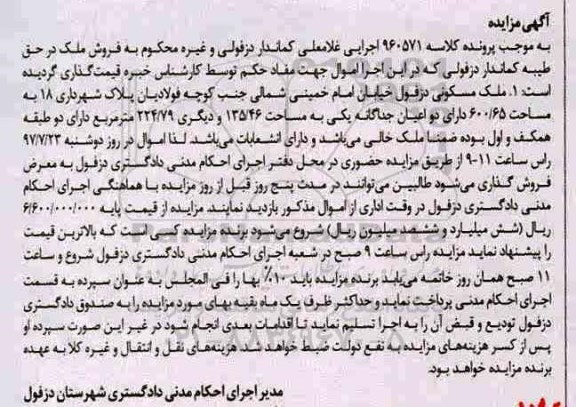 آگهی مزایده
به موجب پرونده کلاسه ۹۶۰۵۷۱ اجرایی غلامعلی کماندار دزفولی و غیره محکوم به فروش ملک در حق
طیبه کماندار دزفولی که در این اجرا اموال جهت مفاد حکم توسط کارشناس خبره قیمت گذاری گردیده
است: ۱. ملک مسکونی دزفول خیابان امام خمینی شمالی جنب کوچه فولادیان پلاک شهرداری ۱۸ به
مساحت ۶۰۰/۶۵ دارای دو اعیان جداگانه یکی به مساحت ۱۳۵/۴۶ و دیگری ۲۲۴/۷۹ مترمربع دارای دو طبقه
همکف و اول بوده ضمنا ملک خالی می‌باشد و دارای انشعابات می‌باشد. لذا اموال در روز دوشنبه ۹۷/۷/۲۳
راس ساعت ۱۱-۹ از طریق مزایده حضوری در محل دفتر اجرای احکام مدنی دادگستری دزفول به معرض
فروش گذاری می‌شود طالبین می‌توانند در مدت پنج روز قبل از روز مزایده با هماهنگی اجرای احکام
مدنی دادگستری دزفول در وقت اداری از اموال مذکور بازدید نمایند. مزایده از قیمت پایه ۶/۶۰۰/۰۰۰/۰۰۰
ریال (شش میلیارد و ششصد میلیون ریال) شروع می‌شود برنده مزایده کسی است که بالاترین قیمت
را پیشنهاد نماید مزایده راس ساعت ۹ صبح در شعبه اجرای احکام مدنی دادگستری دزفول شروع و ساعت
۱۱ صبح همان روز خاتمه می‌یابد برنده مزایده باید ۱۰٪ بها را فی المجلس به عنوان سپرده به قسمت
اجرای احکام مدنی پرداخت نماید و حداکثر ظرف یک ماه بقیه بهای مورد مزایده را به صندوق دادگستری
دزفول تودیع و قبض آن را به اجرا تسلیم نماید تا اقدامات بعدی انجام شود در غیر این صورت سپرده او
پس از کسر هزینه‌های مزایده به نفع دولت ضبط خواهد شد. هزینه‌های نقل و انتقال و غیره کلا به عهده
برنده مزایده خواهد بود.
مدیر اجرای احکام مدنی دادگستری شهرستان دزفول